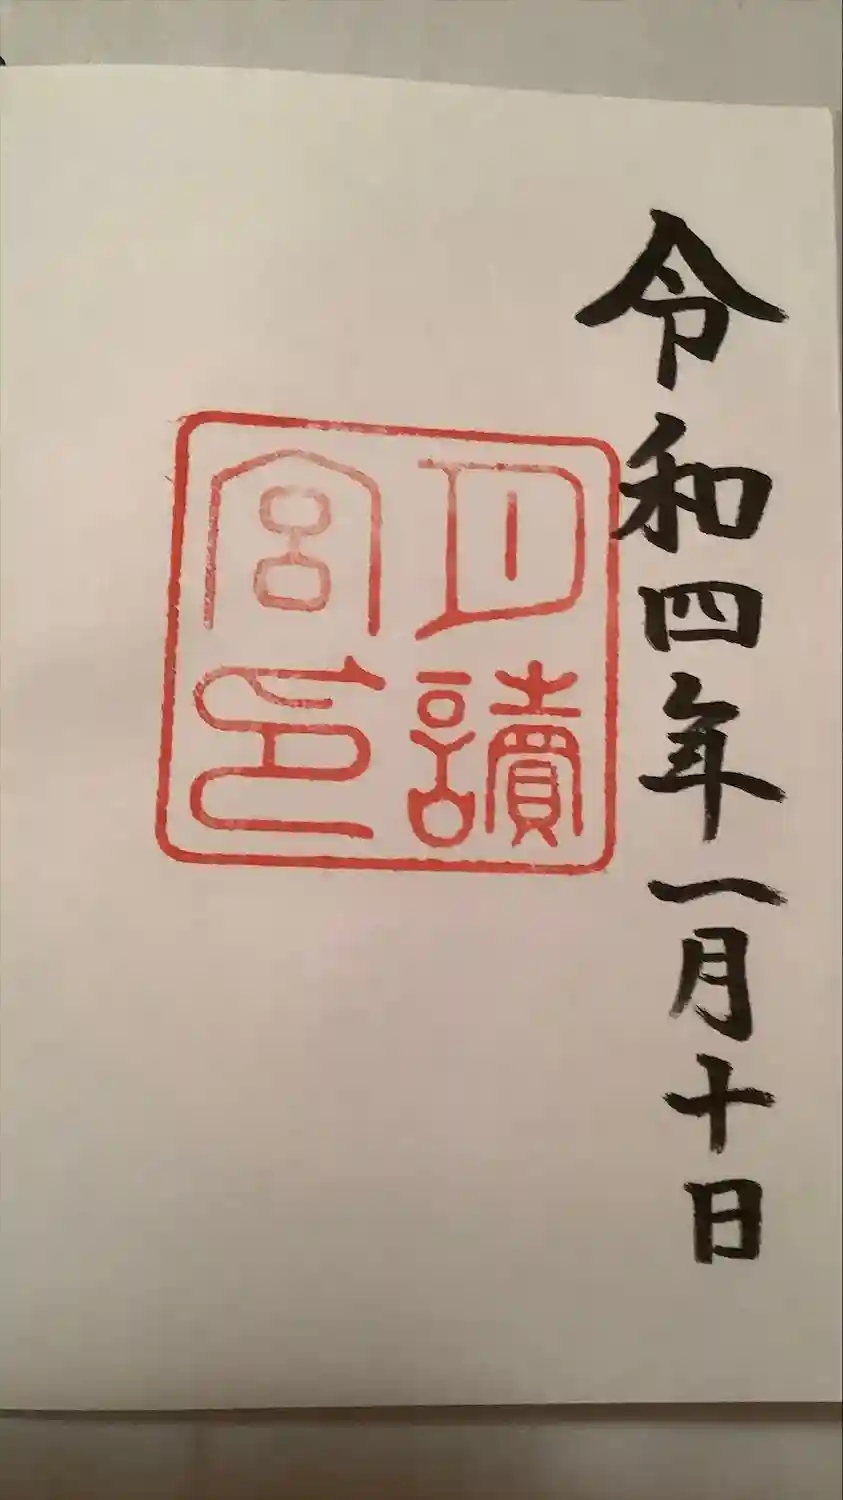 令和四年一月十日
月讀
宮印